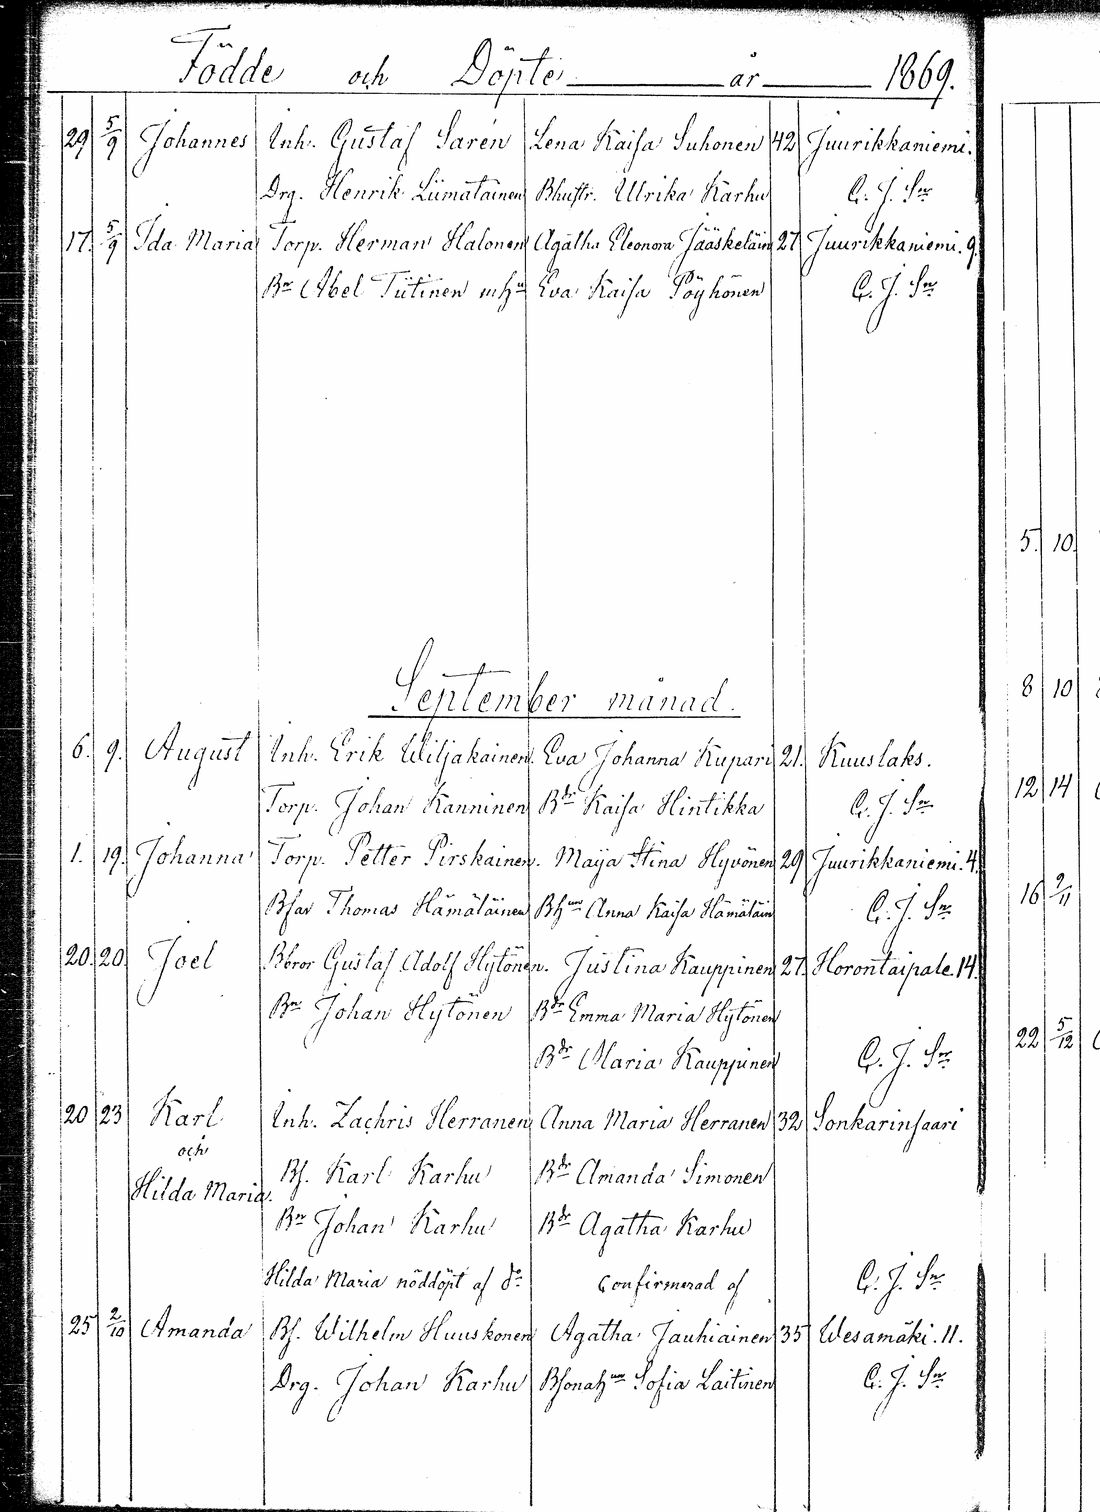 Födde och Döpte år 1869.
29 5/9 Johannes Inh. Gustaf Sarén Lena Kaisa Suhonen 42 Juurikkaniemi.
Drg. Henrik Liimatainen Bhustr. Ulrika Karhu C. J. Snr
17. 5/9 Ida Maria Torp. Herman Halonen Agatha Eleonora Jääskeläin 27 Juurikkaniemi. 9.
Bn Abel Tiitinen mhu Eva Kaisa Pöyhönen C. J. Snr
5. 10.
September månad.
8 10
6. 9. August Inh. Erik Wiljakainen. Eva Johanna Kupari 21. Kuuslaks.
12 14
Torp. Johan Kanninen Bdr Kaisa Hintikka C. J. Snr
1. 19. Johanna Torp. Petter Pirskainen. Maija Stina Hyvönen 29 Juurikkaniemi. 4.
16 2/11
Bfar Thomas Hämäläinen Bhun Anna Kaisa Hämäläin C. J. Snr
20. 20. Joel Bbror Gustaf Adolf Hytönen. Justina Kauppinen 27. Horontaipale. 14.
Bn Johan Hytönen Bdr Emma Maria Hytönen
22 5/12
Bdr Maria Kauppinen C. J. Snr
20 23 Karl Inh. Zachris Herranen Anna Maria Herranen 32 Sonkarinsaari
och
Bs. Karl Karhu Bdr Amanda Simonen
Hilda Maria.
Bn Johan Karhu Bdr Agatha Karhu
Hilda Maria nöddöpt af do Confirmerad af C. J. Snr
25 2/10 Amanda Bs. Wilhelm Huuskonen Agatha Jauhiainen 35 Wesamäki. 11.
Drg. Johan Karhu Bsonahun Sofia Laitinen C. J. Snr